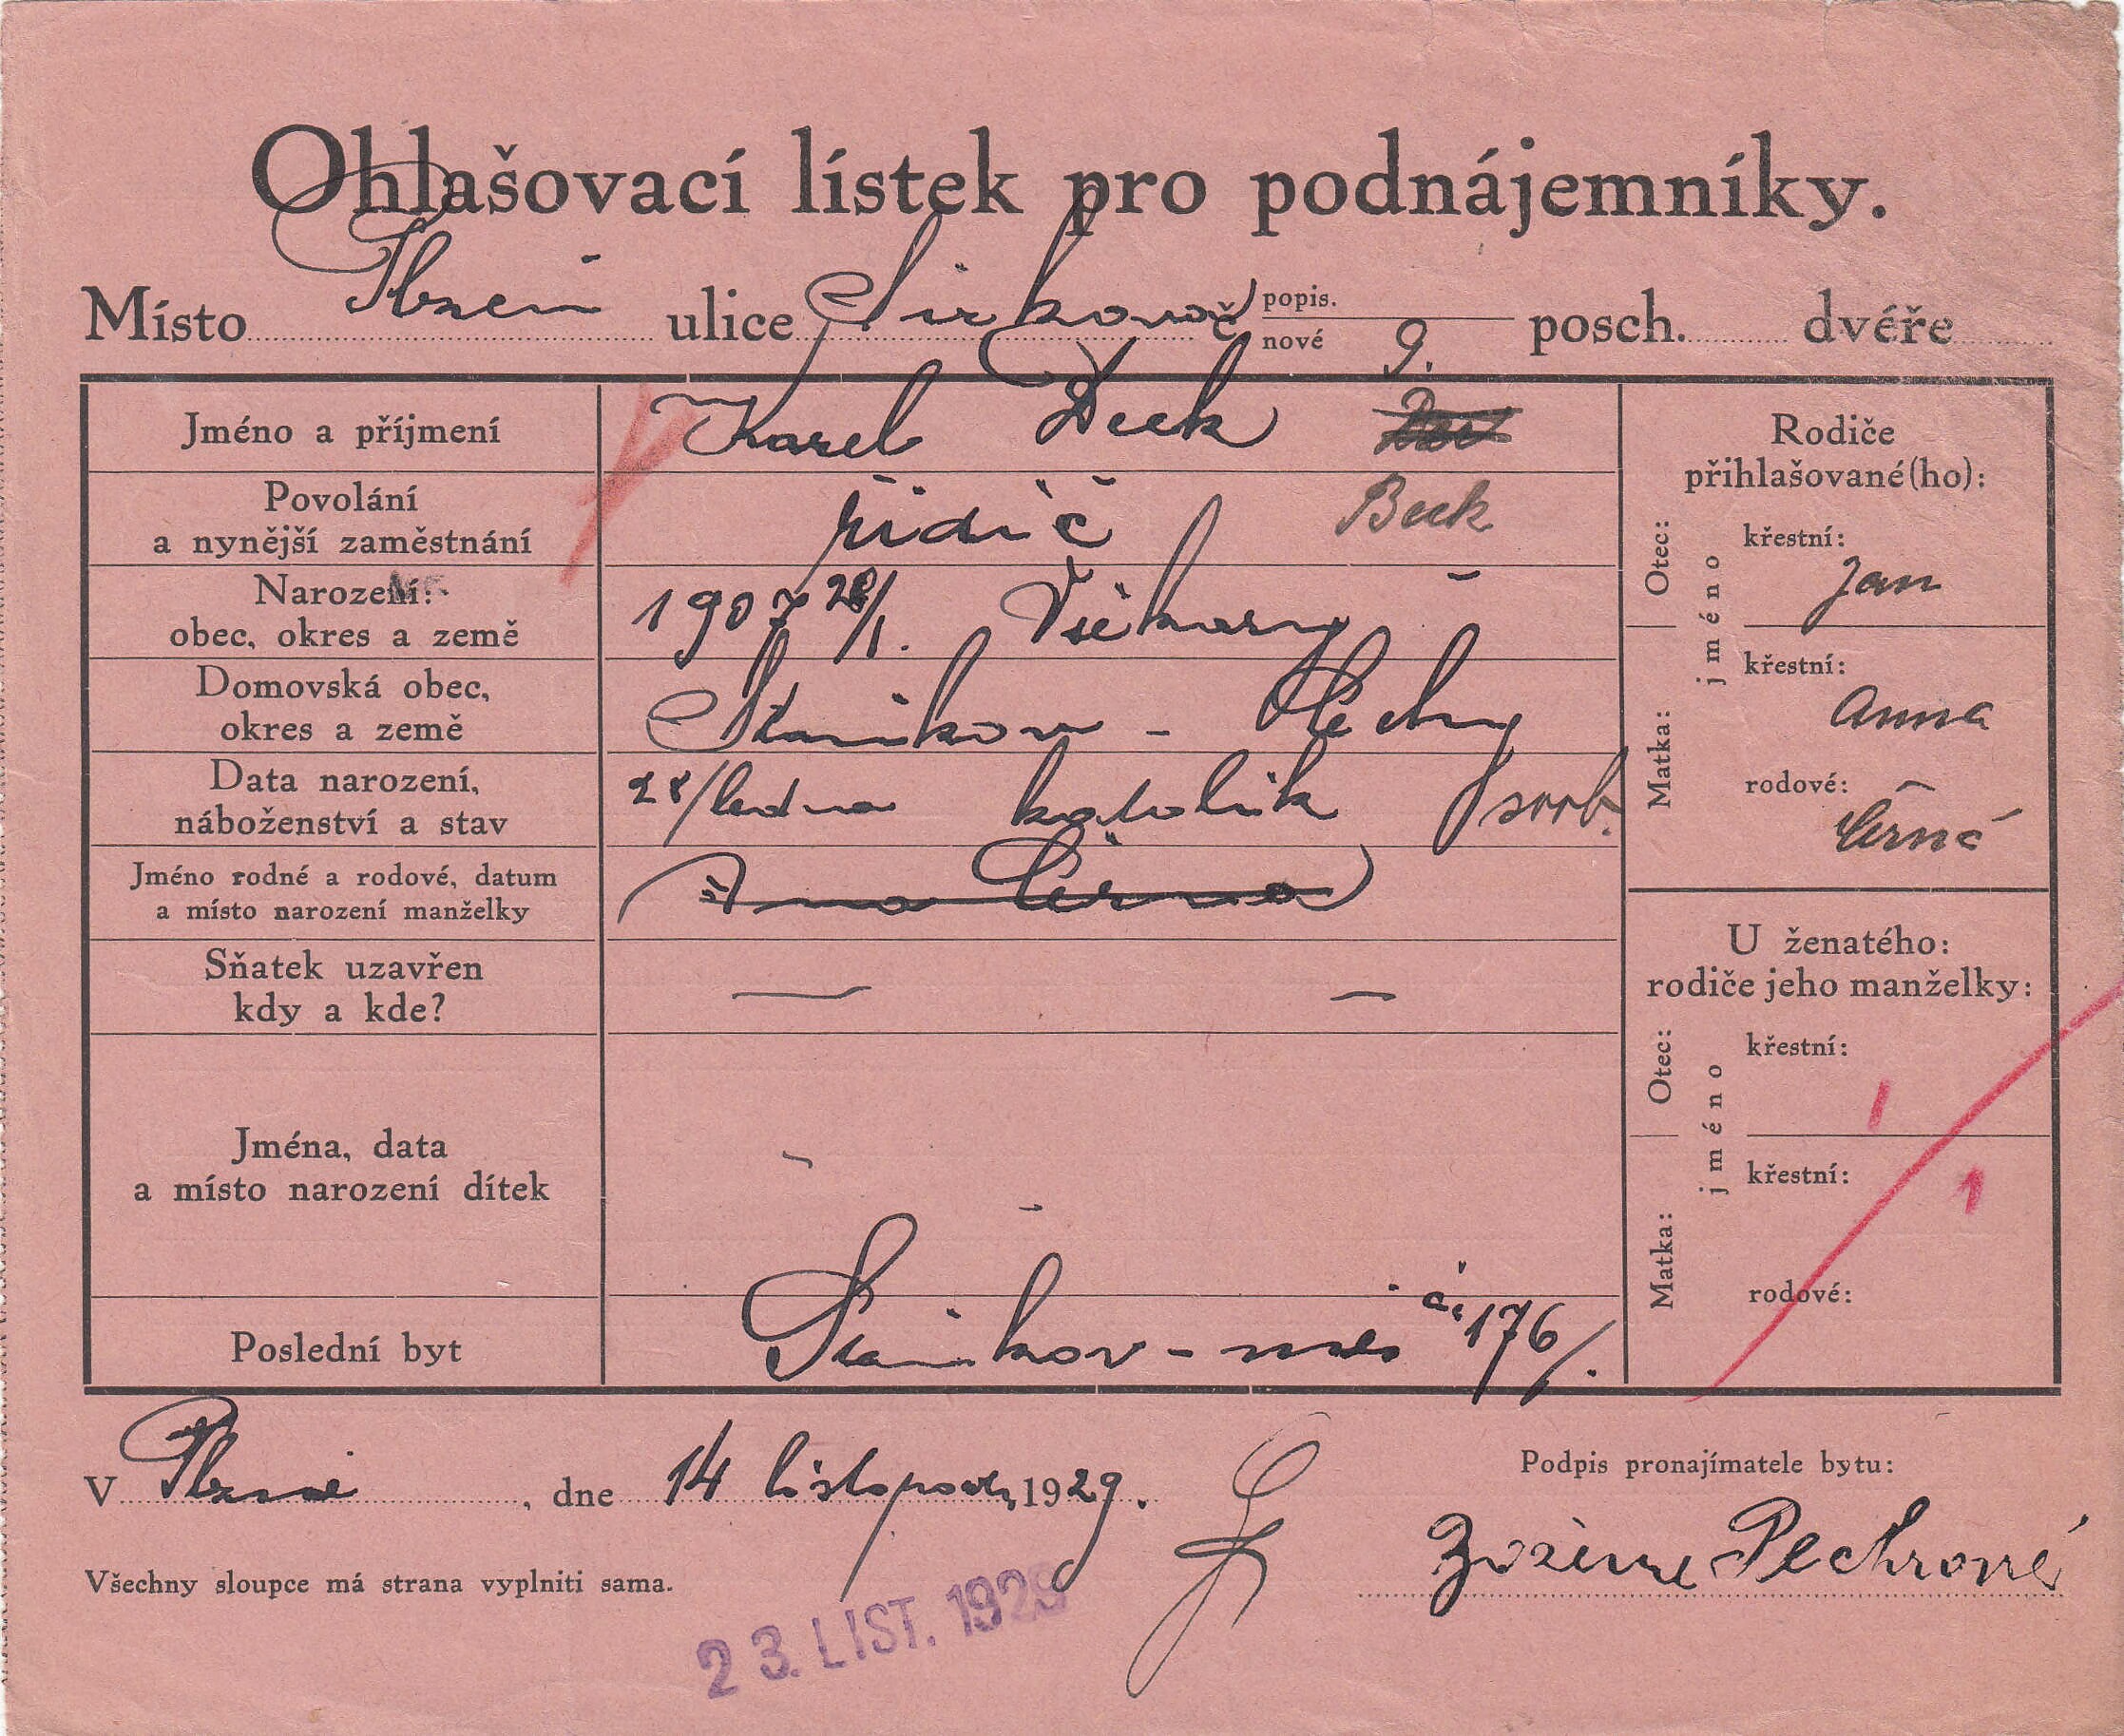 Ohlašovací lístek pro podnájemníky.
Místo Plzeň ulice č. popis. nové 9. posch. dvéře
Jméno a příjmení Karel Beck
Povolání a nynější zaměstnání řidič Beck
Narození:
obec, okres a země 1907 28/1. Všekary
Domovská obec,
okres a země Staňkov - Čechy
Data narození,
náboženství a stav 28/ledna katolík svob.
Jméno rodné a rodové, datum
a místo narození manželky Ana Černá
Sňatek uzavřen
kdy a kde? — —
Jména, data
a místo narození dítek
Poslední byt Staňkov - měs č. 176/.
Rodiče
přihlašované(ho):
Otec: jméno křestní:
Jan
Matka: křestní:
Anna
rodové:
Černá
U ženatého:
rodiče jeho manželky:
Otec: jméno křestní:
Matka: křestní:
rodové:
V Plzni, dne 14 listopadu 1929.
Podpis pronajímatele bytu:
Všechny sloupce má strana vyplniti sama.
23. LIST. 1929